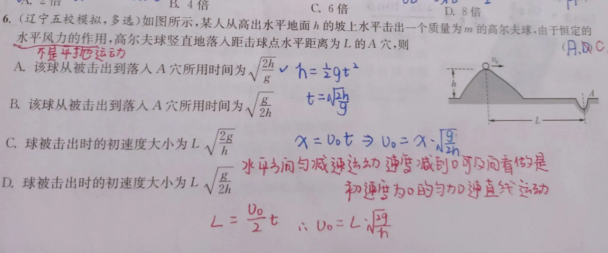 A. 2倍 B. 4倍 C. 6倍 D. 8倍
6. (辽宁五校模拟,多选)如图所示,某人从高出水平地面 h 的坡上水平击出一个质量为 m 的高尔夫球.由于恒定的
水平风力的作用,高尔夫球竖直地落入距击球点水平距离为 L 的 A 穴,则 (A.D C
不是平抛运动
A. 该球从被击出到落入 A 穴所用时间为 √(2h/g) ✓ h=½gt²
B. 该球从被击出到落入 A 穴所用时间为 √(g/2h) t=√(2h/g)
C. 球被击出时的初速度大小为 L√(2g/h) x=υ₀t ⇒ υ₀=x·√(g/2h)
水平方向匀减速运动 速度减到0 可反向看做是
D. 球被击出时的初速度大小为 L√(g/2h)
初速度为0的匀加速直线运动
L=υ₀/2 t ∴υ₀=L·√(2g/h)
h
υ₀
A
L